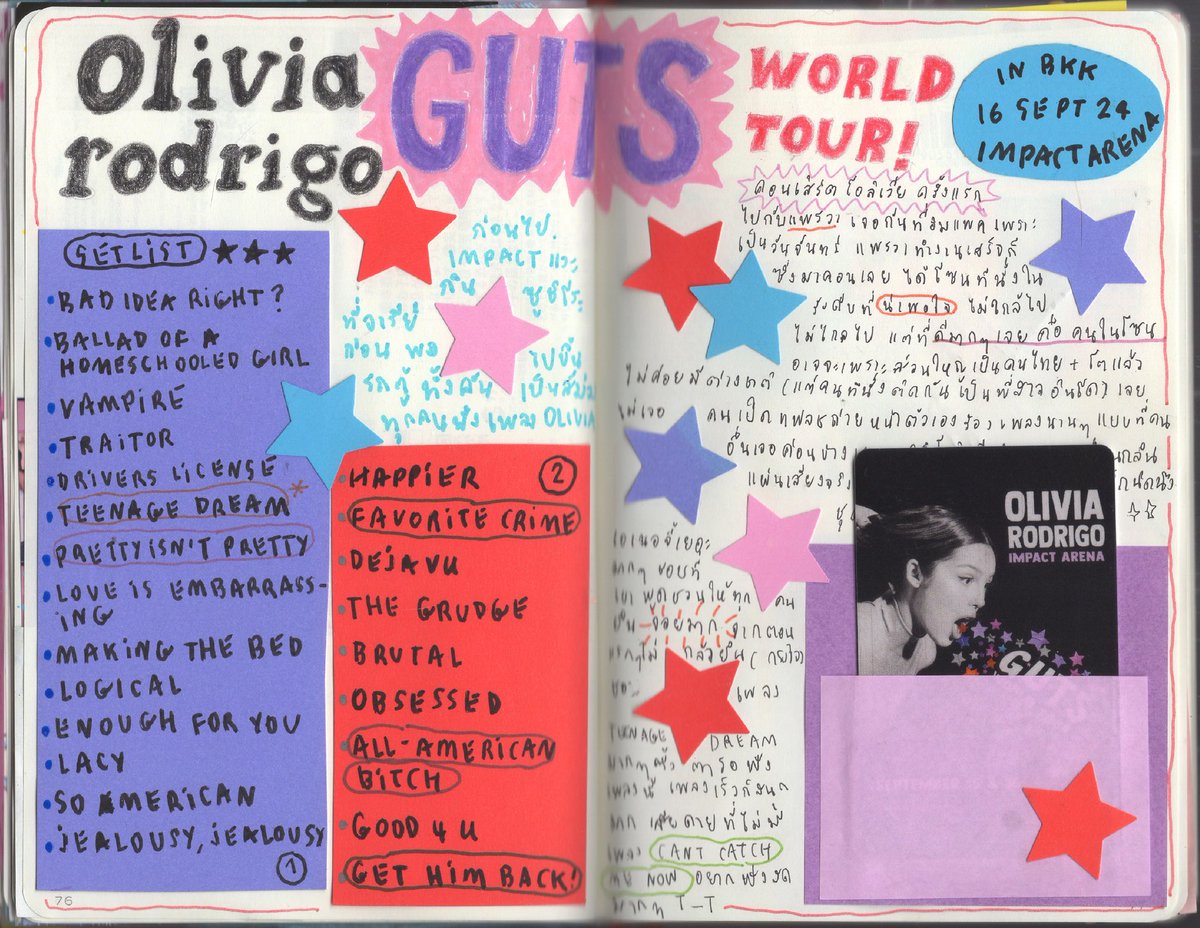 Olivia
rodrigo
GUTS
WORLD
TOUR!
IN BKK
16 SEPT 24
IMPACT ARENA
SETLIST
BAD IDEA RIGHT?
BALLAD OF A
HOMESCHOOLED GIRL
VAMPIRE
TRAITOR
DRIVERS LICENSE
TEENAGE DREAM*
PRETTY ISN'T PRETTY
LOVE IS EMBARRASS-
ING
MAKING THE BED
LOGICAL
ENOUGH FOR YOU
LACY
SO AMERICAN
JEALOUSY, JEALOUSY
1
ก่อนไป
IMPACT แวะ
กิน
ก่อน
ไปขึ้น
ทุกคนฟังเพลง OLIVIA
2
HAPPIER
FAVORITE CRIME
DEJAVU
THE GRUDGE
BRUTAL
OBSESSED
ALL-AMERICAN
BITCH
GOOD 4 U
GET HIM BACK!
76
คอนเสิร์ต โอลิเวีย ครั้งแรก
ไปกับแพรวา เจอกันที่อิมแพค เพราะ
เป็นวันจันทร์ แพรวาทำงานเสร็จก็
ซิ่งมาคอนเลย ได้โซนที่นั่งใน
ระดับที่ น่าพอใจ ไม่ใกล้ไป
ไม่ไกลไป แต่ที่ดีมากๆ เลย คือ คนในโซน
อาจจะเพราะส่วนใหญ่เป็นคนไทย + โตแล้ว
ไม่ค่อยมีต่างชาติ (แต่คนที่นั่งติดกันเป็นพี่สาว อินจัด) เลย
ไม่เจอ คนเปิดแฟลชถ่ายหน้าตัวเองร้องเพลงนานๆ แบบที่คน
อื่นเจอ
OLIVIA
RODRIGO
IMPACT ARENA
GUTS
มากๆ ชอบที่
คน
จอยมาก จากตอน
แรกๆ ไม่กล้ายืน
เพลง
TEENAGE DREAM
เพลงนี้ เพลงเร็วก็สนุก
มาก เสียดายที่ไม่มี
เพลง CANT CATCH
ME NOW อยากฟังสด
มากๆ T-T